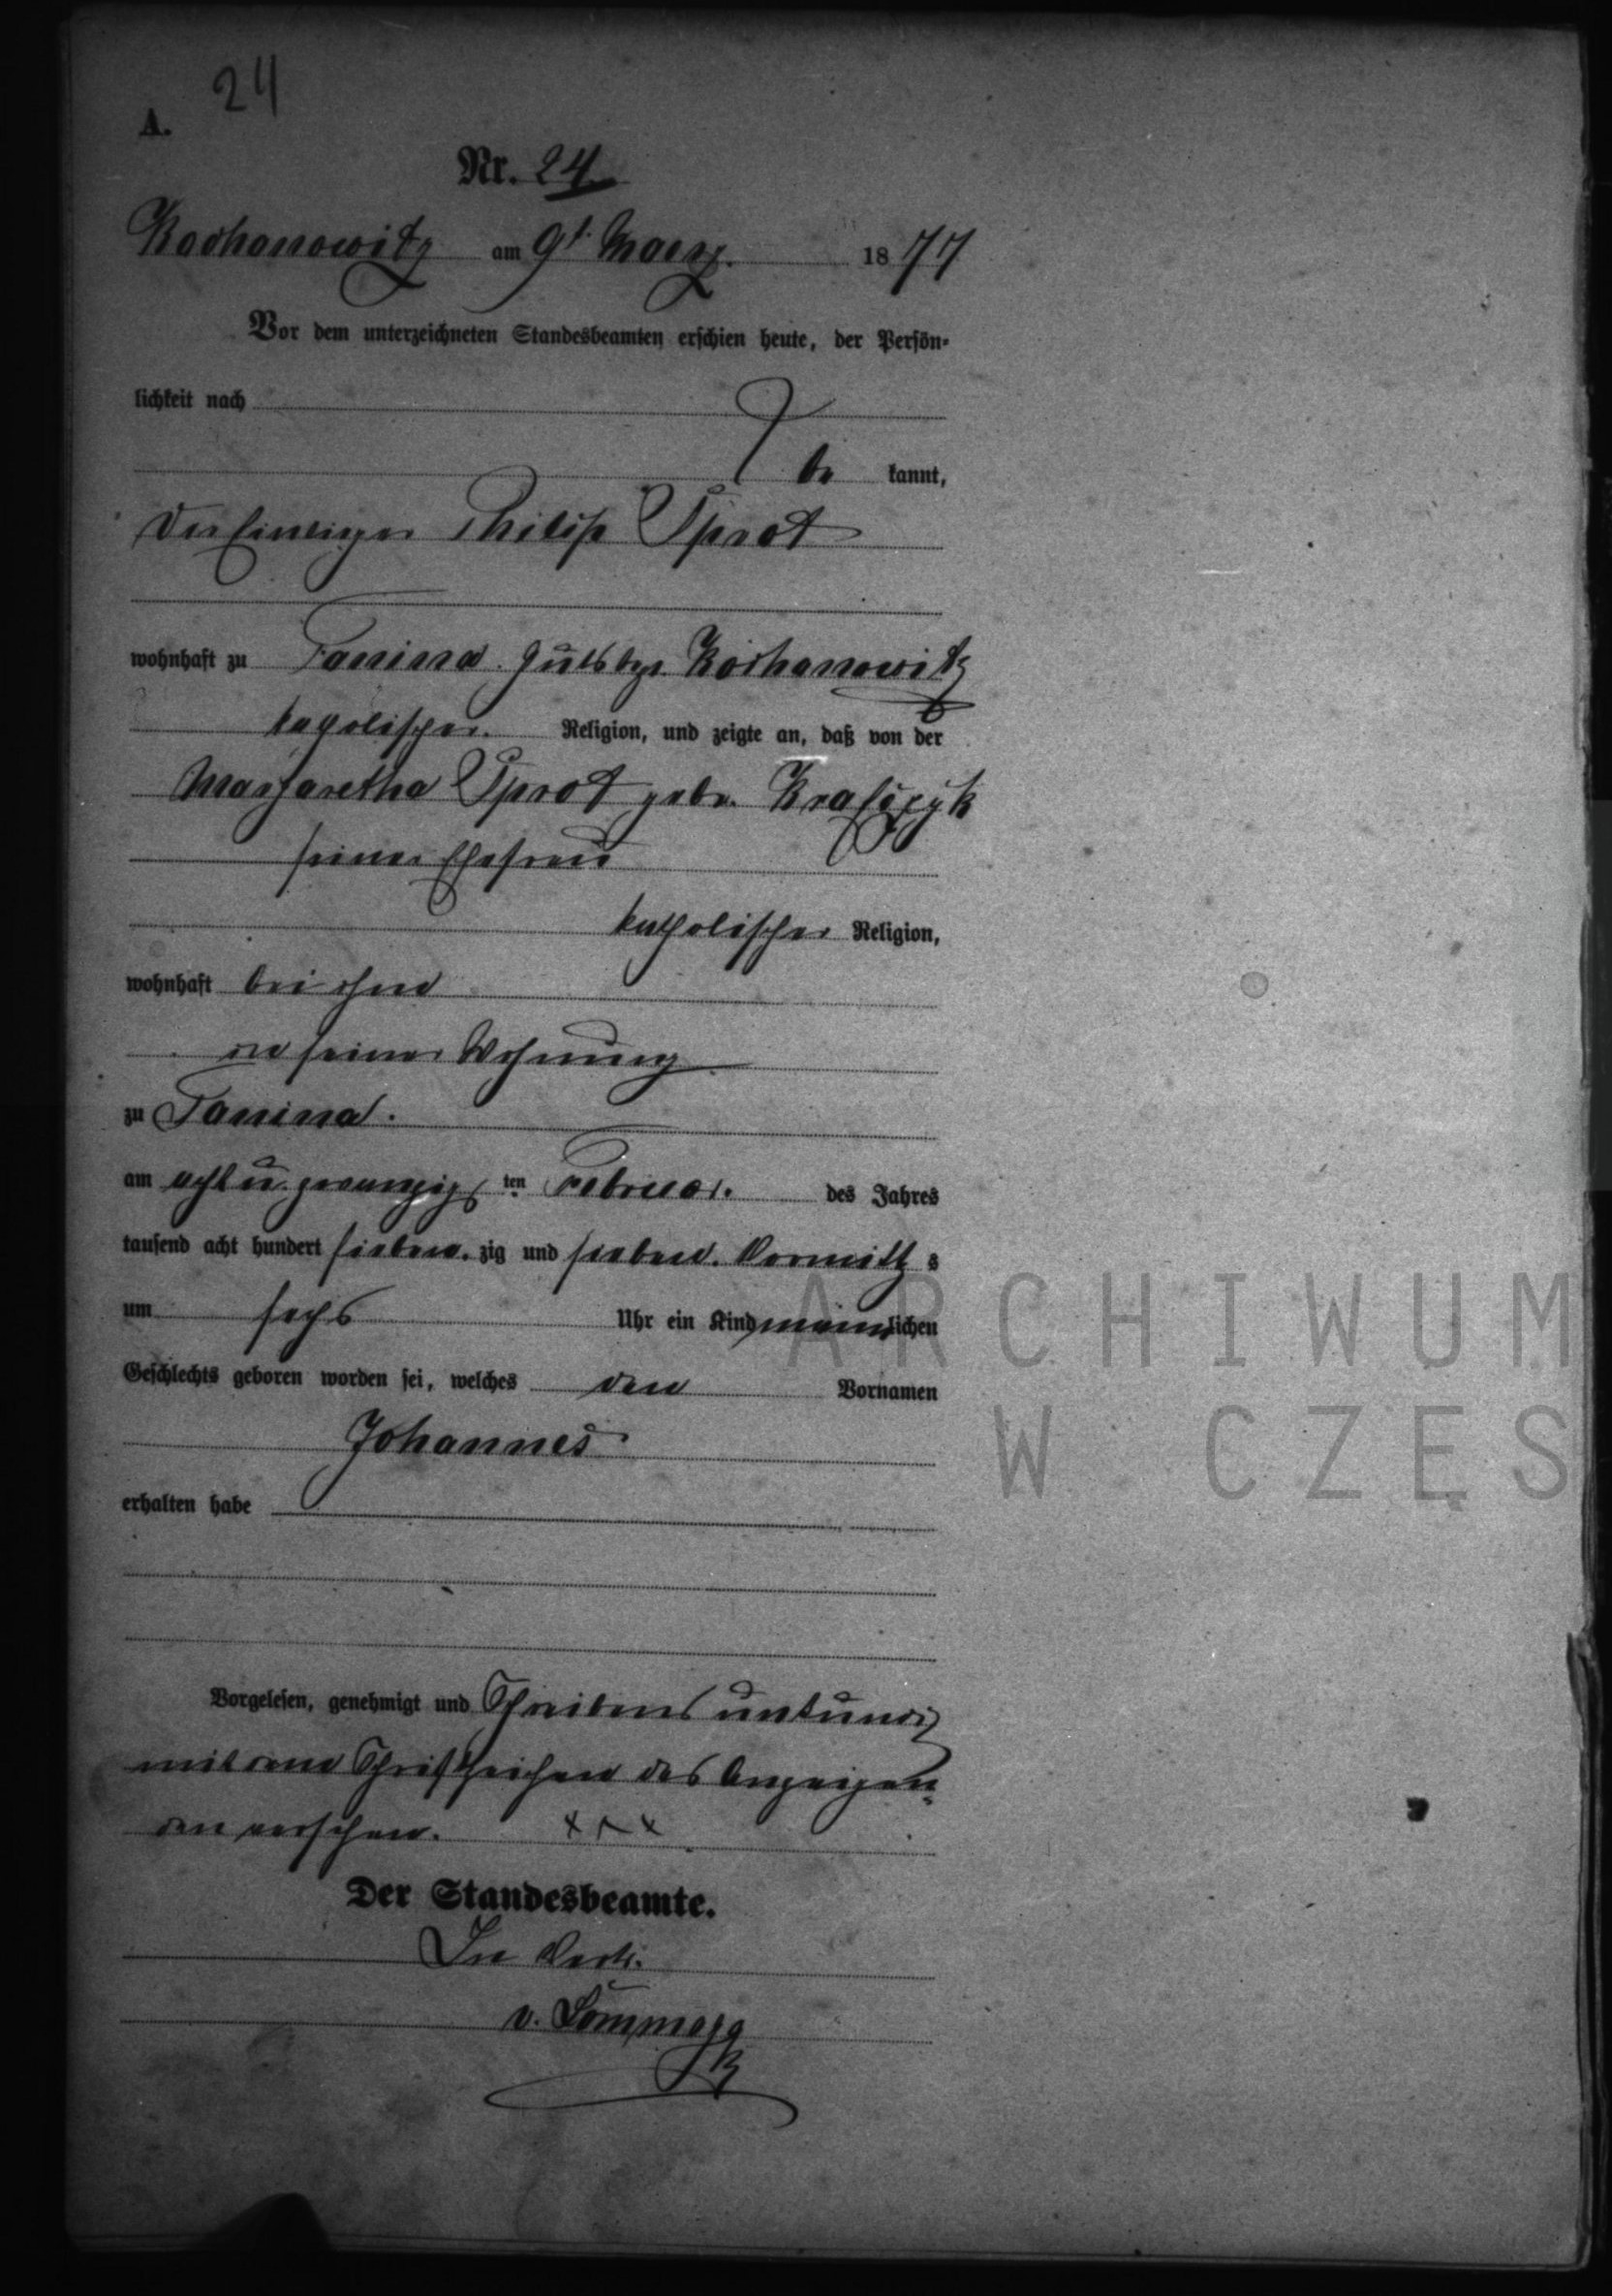 24
A.
Nr. 24
Kochanowitz am 9t. Maerz. 1877
Vor dem unterzeichneten Standesbeamten erschien heute, der Persön-
lichkeit nach
be kannt,
Der Einlieger Philip Sprot
wohnhaft zu Panina. Gutsbez. Kochanowitz
katholischer. Religion, und zeigte an, daß von der
Margaretha Sprot gebr.
seiner Ehefrau
katholischer Religion,
wohnhaft bei ihm
in seiner Wohnung
zu Panina.
am acht u. zwanzigs ten Februar. des Jahres
tausend acht hundert sieben. zig und sieben. Vormittg s
um sechs Uhr ein Kind männlichen
Geschlechts geboren worden sei, welches den Vornamen
Johannes
erhalten habe
Vorgelesen, genehmigt und Schreibens unkundig
mit dem Schriftzeichen des Anzeigen-
den versehen. xxx
Der Standesbeamte.
In Vertr.
v.
ARCHIWUM
W CZĘS